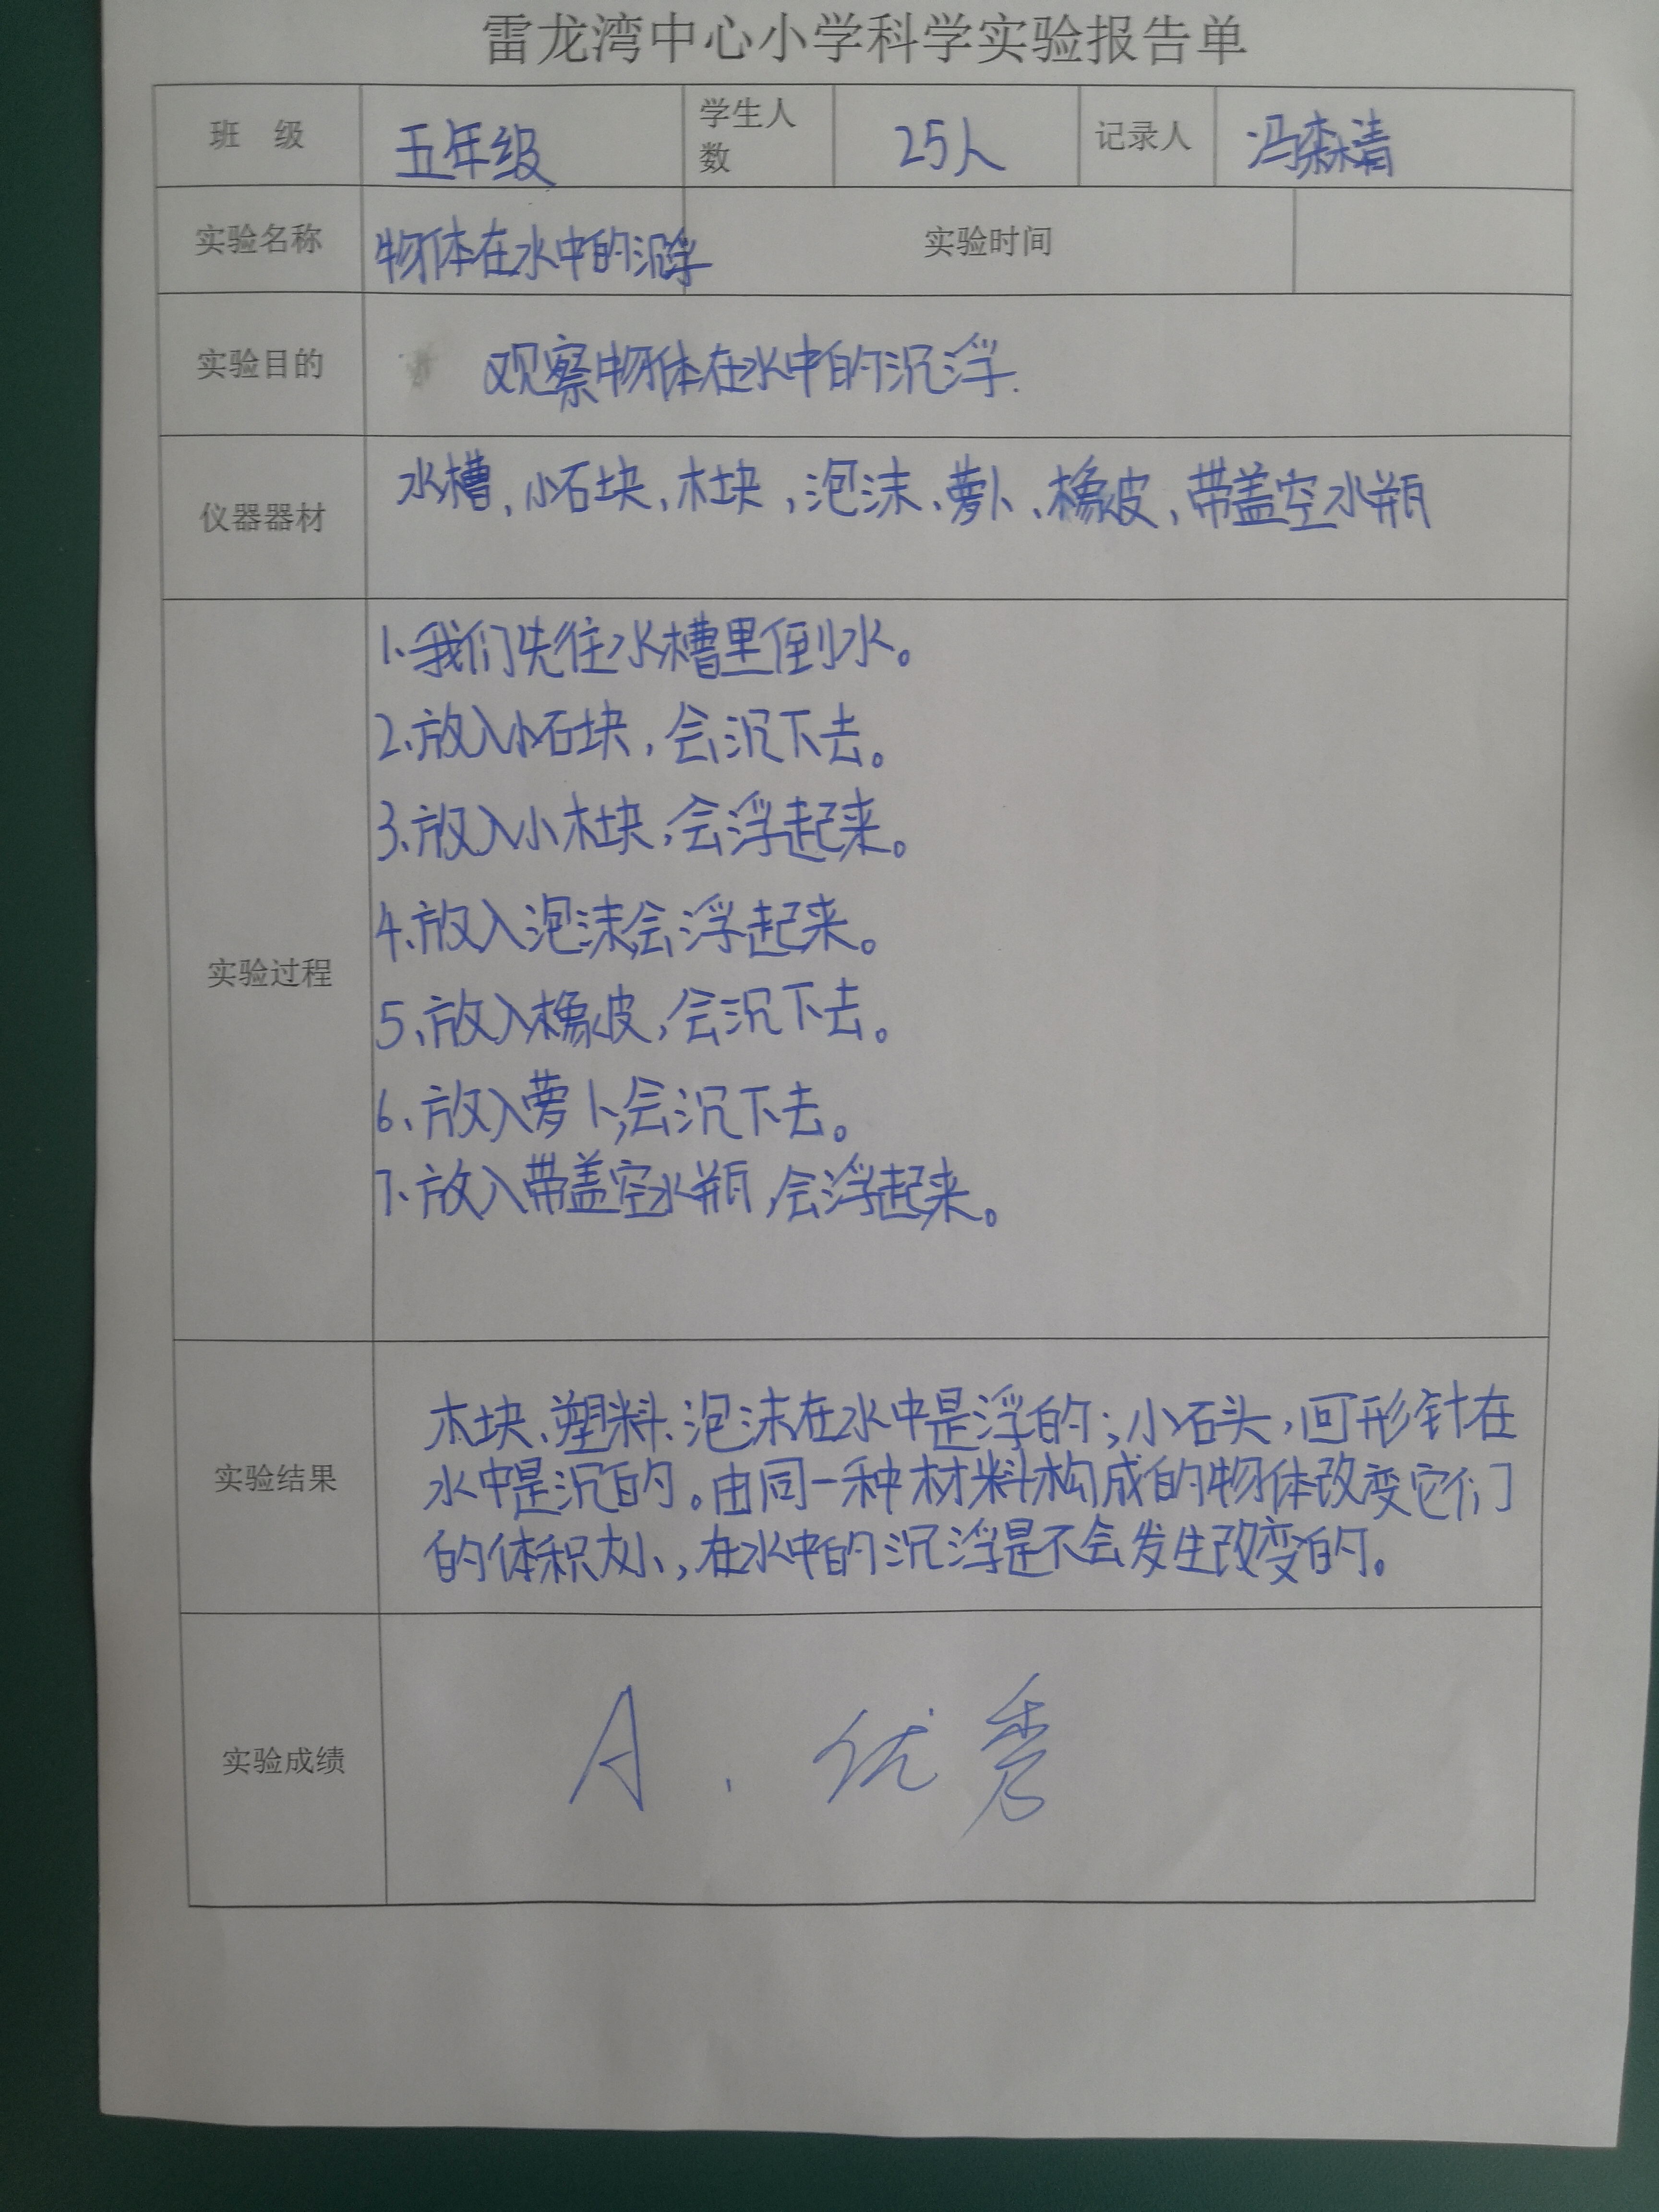 雷龙湾中心小学科学实验报告单
班 级 五年级 学生人数 25人 记录人 冯森清
实验名称 物体在水中的沉浮 实验时间
实验目的 观察物体在水中的沉浮.
仪器器材 水槽、小石块、木块,泡沫、萝卜、橡皮、带盖空水瓶
实验过程
1、我们先往水槽里倒水。
2、放入小石块,会沉下去。
3、放入小木块,会浮起来。
4、放入泡沫,会浮起来。
5、放入橡皮,会沉下去。
6、放入萝卜,会沉下去。
7、放入带盖空水瓶,会浮起来。
实验结果
木块、塑料、泡沫在水中是浮的;小石头,回形针在
水中是沉的。由同一种材料构成的物体改变它们
的体积大小,在水中的沉浮是不会发生改变的。
实验成绩 A、优秀